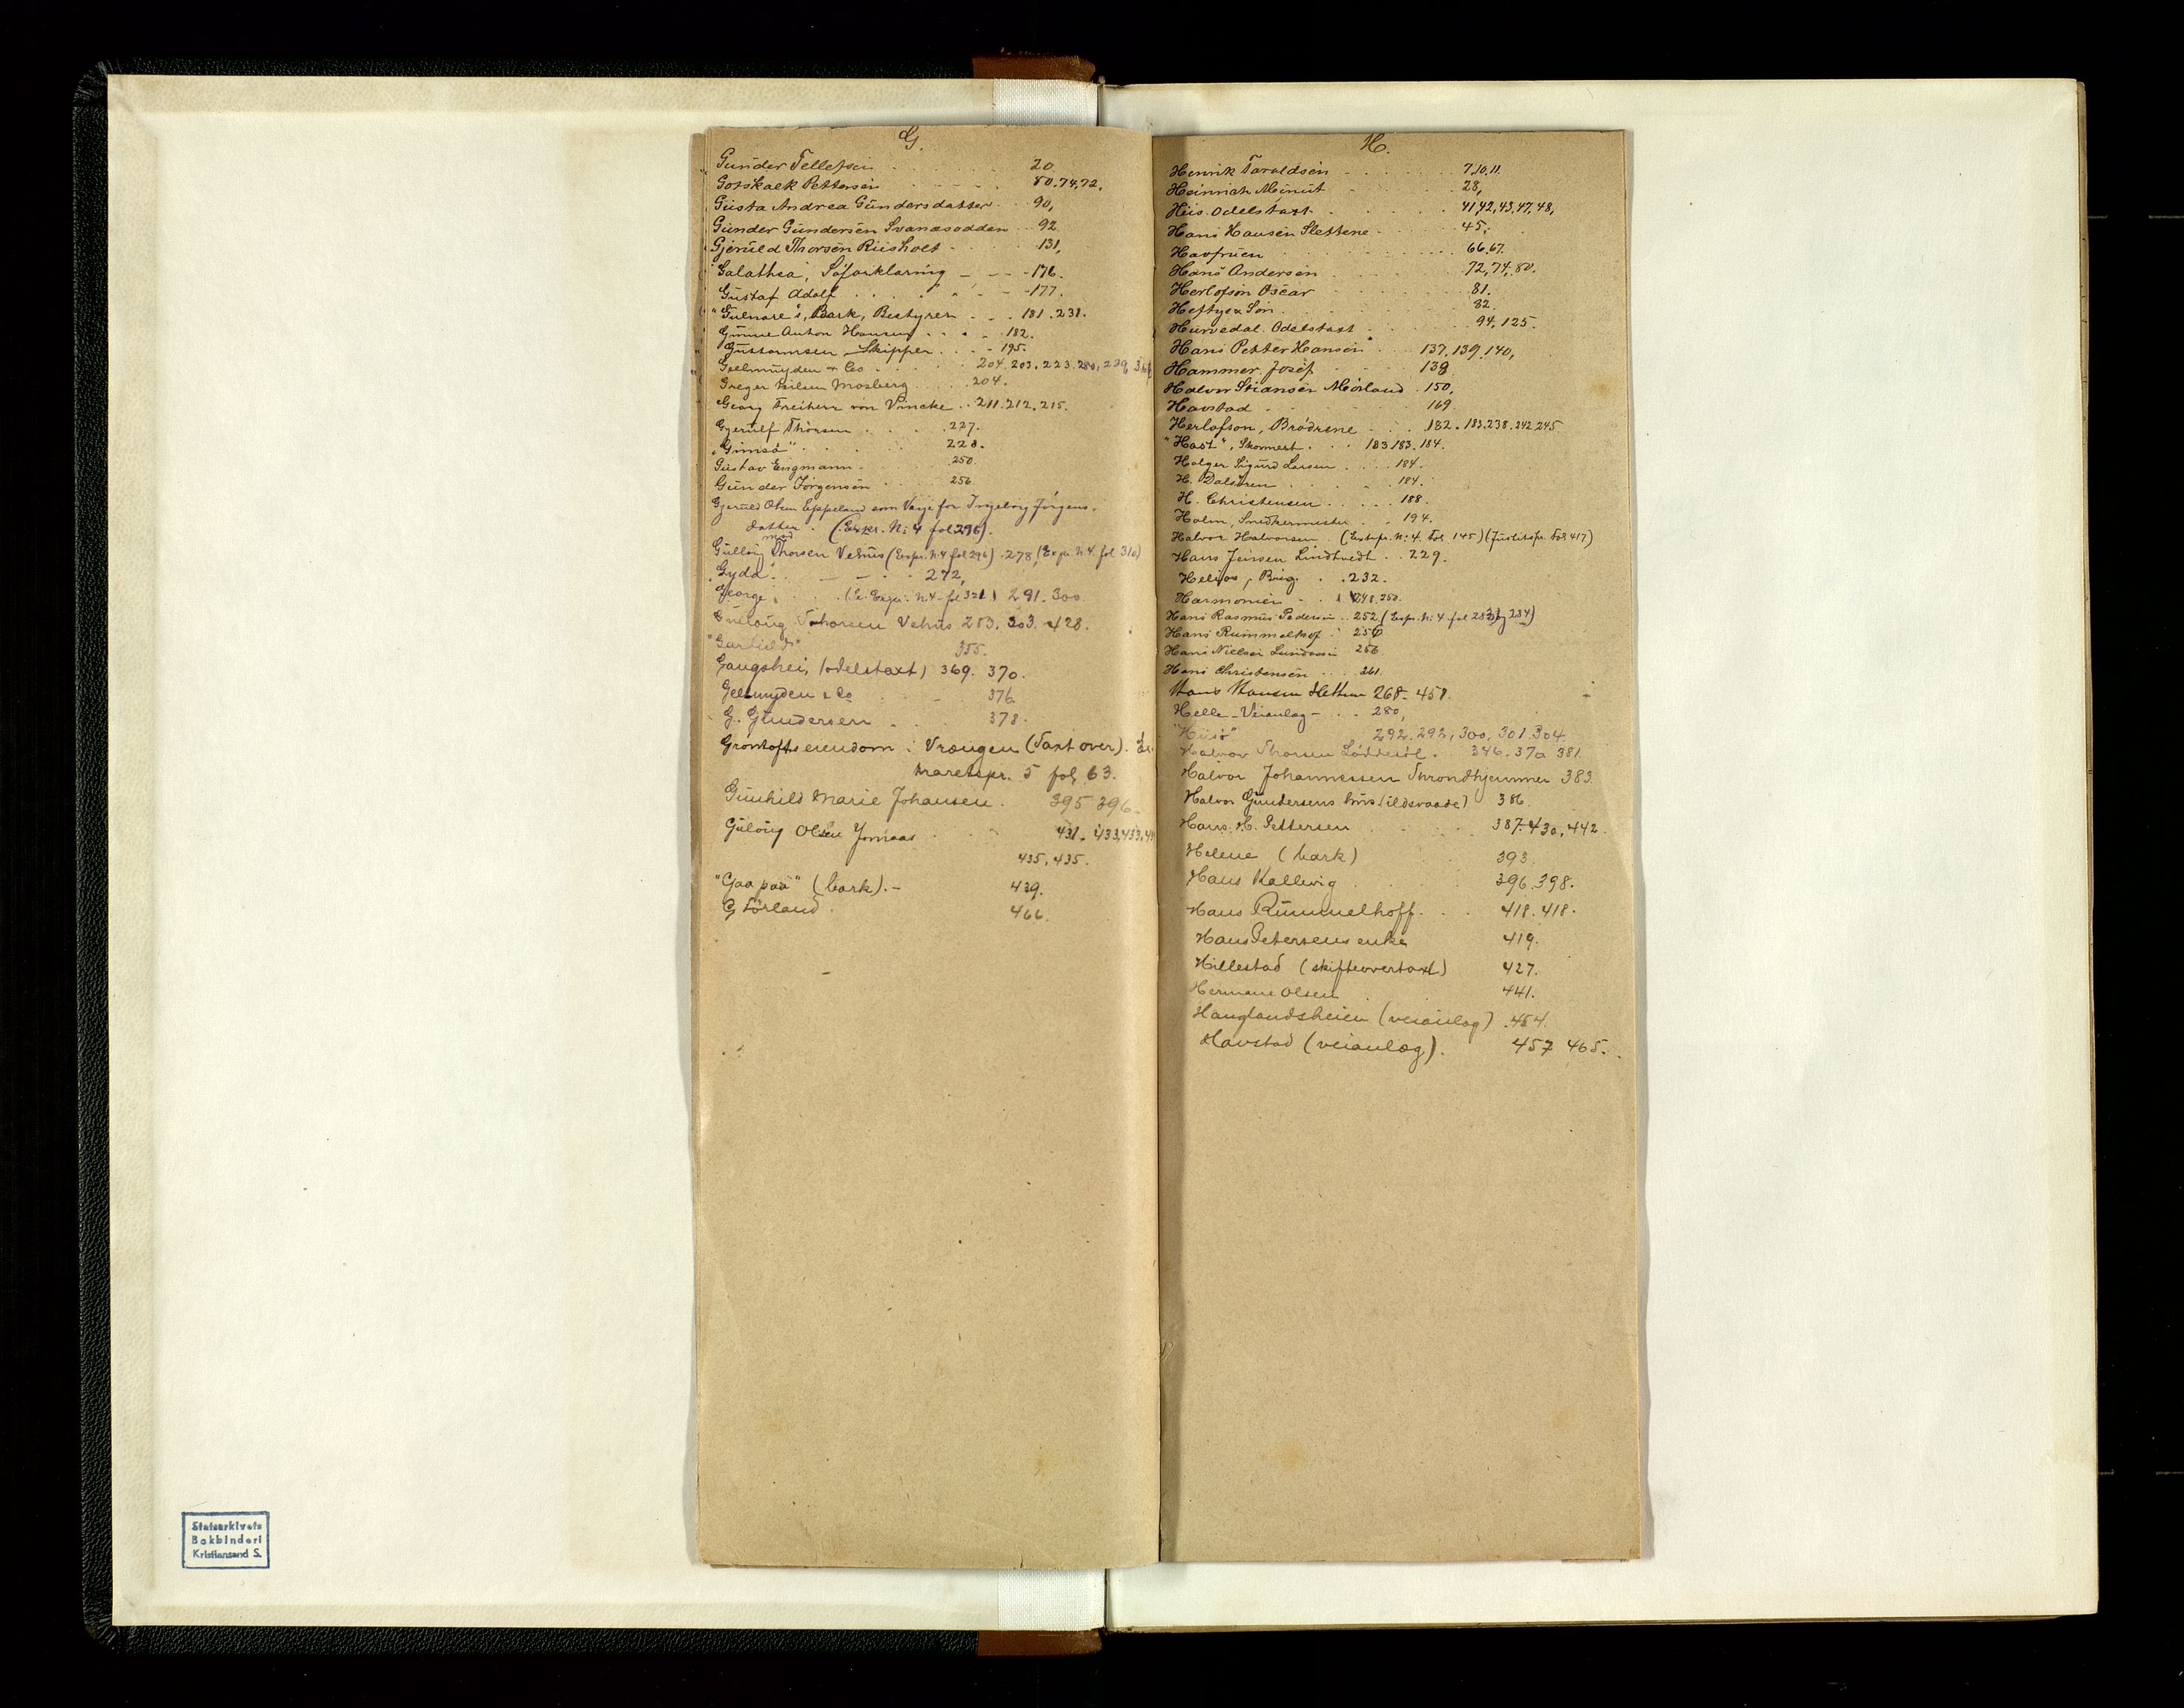 G.
Gunder Tellefsen 20
Gotskalk Pettersen 80.74.72.
Gusta Andrea Gundersdatter 90,
Gunder Gundersen Svanæsodden 92
Gjeruld Thorsen Riisholt 131,
"Galathea", Söforklaring 176.
Gustaf Adolf 177.
"Gulnare"s, Bark, Bestyrer 181.231.
Gunne Anton Hansen 182.
Gustavnsen Skipper 195.
Geelmuyden & Co 204.203.223.280,229,
Greger Nilsen Mosberg 204.
Georg Freiherr von Vincke 211.212.215.
Gjerulf Thorsen 227.
"Gimsö" 228.
Gustav Engmann 250.
Gunder Jörgensen 256
Gjeruld Olsen Eppeland som Verge for Ingeborg Jörgens-
datter. (Expr. N: 4 fol 296).
Gulloug Thorsen Vehus (Expr. N 4 fol 296) 278, (Expr. N 4. fol 310)
"Gyda" 272,
George, (Se Expr. N. 4 fol 321) 291.300.
Guloug Thorsen Vehus 253. 303. 428.
"Garfield" 355.
Gaugshei, (odelstaxt) 369. 370.
Geelmyden & Co 376.
G. Gundersen 378.
Gröntofts eiendom i Vrængen (Taxt over).
traretspr. 5 fol 63.
Gunhild Marie Johansen. 395 396
Guloug Olsen Jomaas 431. 433,433,
435, 435.
"Gaa paa" (bark). 439.
G Förland. 466.
H.
Henrik Taraldsen 7.10.11.
Heinrich Meinut 28,
Hus. Odelstaxt 41,42,43,47,48,
Hans Hansen Slettene 45,
Havfruen 66.67.
Hans Andersen 72,74,80.
Herlofson Oscar 81.
Heftye & Sön. 82.
Hurvedal. Odelstaxt 94,125.
Hans Petter Hansen 137.139.140,
Hammer. Josef 138
Halvor Stiansen Mörland 150,
Havstad 169.
Herlofson, Brødrene 182.183.238.242.245
"Hast", Skonnert 183 183. 184.
Holger Sigurd Larsen 184.
H. Dalsören 184.
H. Christensen 188.
Holm, Snedkermester 194.
Halvor Halvorsen (Extrpr. N: 4. Fol. 145) (Justitspr. Fol 417)
Hans Jensen Lindtvedt 229.
Helios, Brig. 232.
Harmonien 248.250.
Hans Rasmus Pedersen 252 (Expr. N: 4 fol 283 og 284)
Hans Rummelhof 256
Hans Nielsen Lundeven 256.
Hans Christensen 261.
Hans Hansen 268. 458.
Helle-Veianlæg- 280,
"Hisö" 292.292,300,301.304.
Halvor Thorsen Löddesöl. 346.370 381.
Halvor Johannessen Throndhjemmer 383.
Halvor Gundersens hus (ildsvaade) 386.
Hans. H. Pettersen 387.430,442.
Helene (bark) 393.
Hans Kallevig 396.398.
Hans Rummelhoff. 418.418.
Hans Petersens enke 419.
Hillestad (skifteovertaxt) 427.
Hermane Olsen 441.
Hauglandsheien (veianlæg) 454.
Havstad (veianlæg). 457 465.
Statsarkivets
Bokbinderi
Kristiansand S.